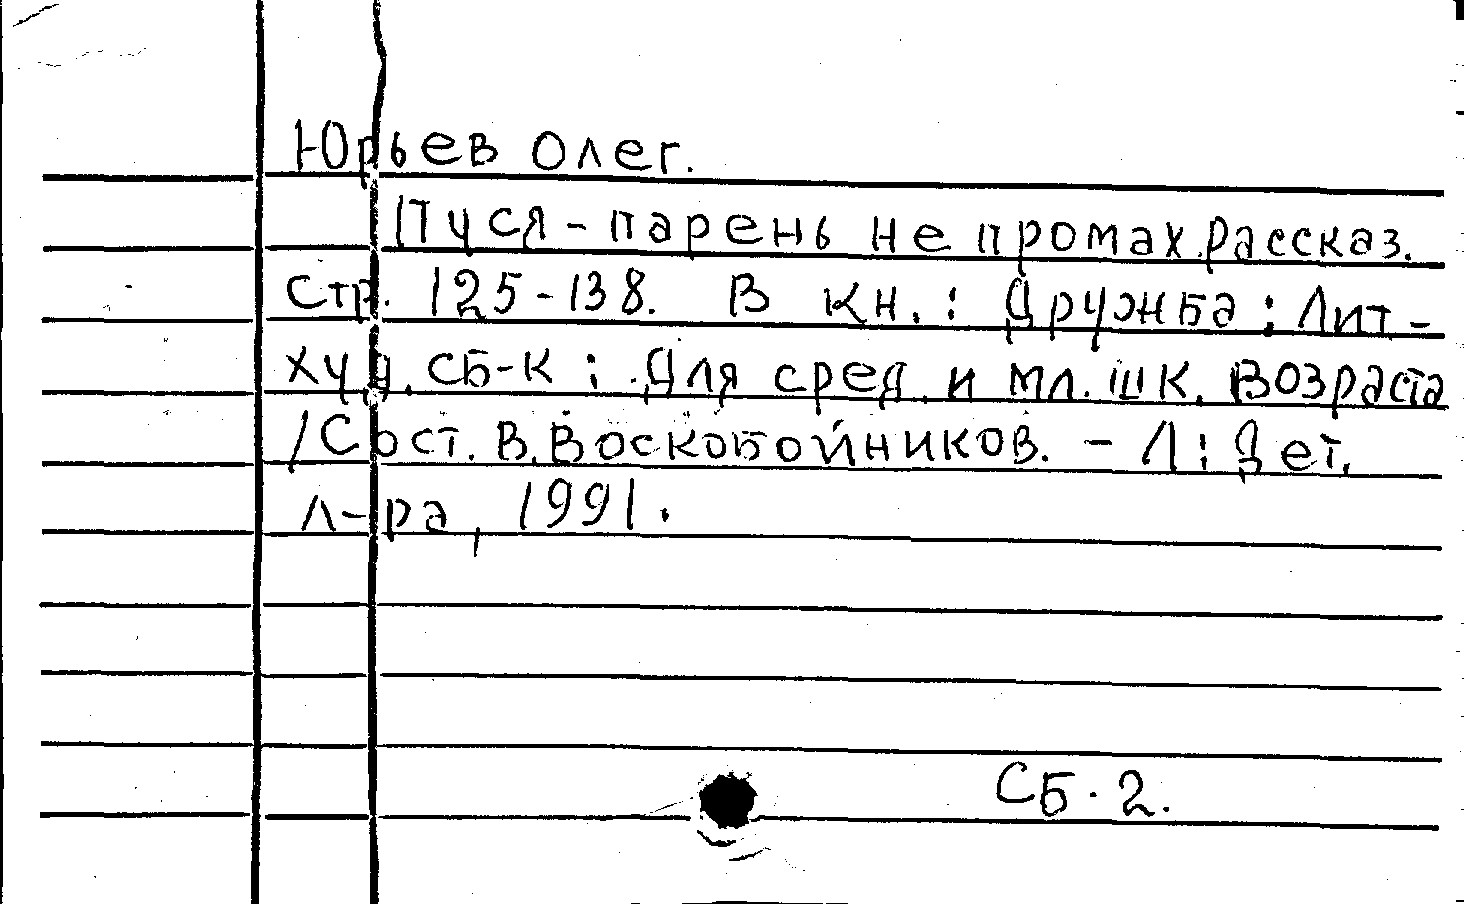 Юрьев Олег.
Пуся - парень не промах. Рассказ.
Стр. 125-138. В кн.: Дружба: Лит-
худ. сб-к: Для сред. и мл. шк. возраста
/Сост. В. Воскобойников. - Л: Дет.
л-ра, 1991.
Сб. 2.